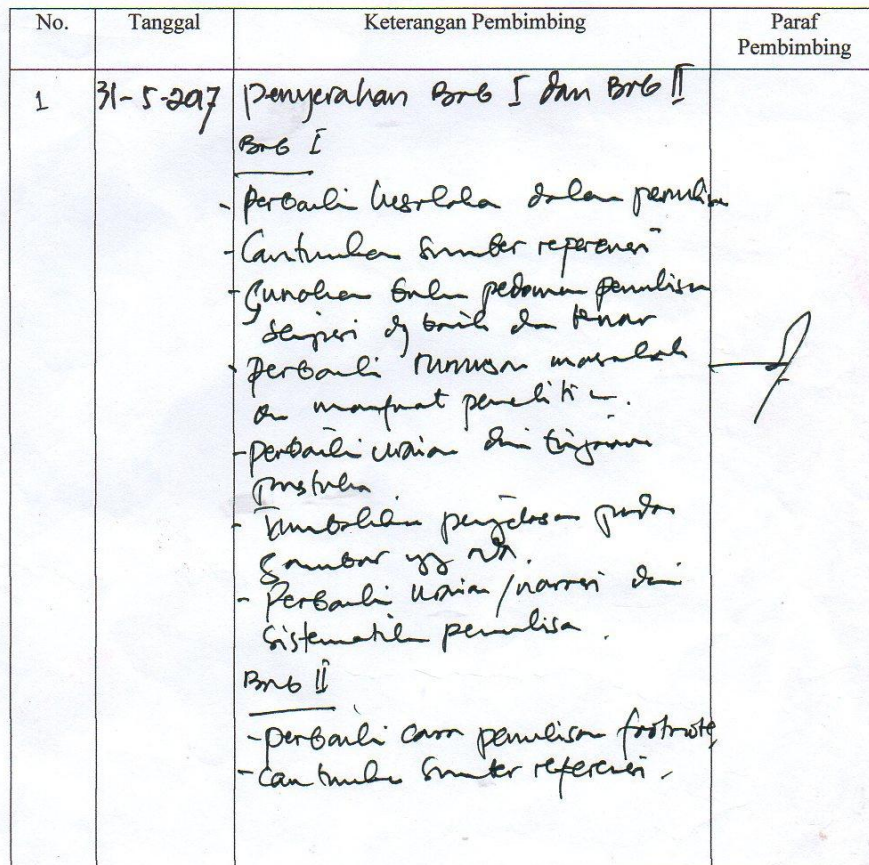 No. Tanggal Keterangan Pembimbing Paraf Pembimbing
1 31-5-2017 Penyerahan Bab I dan Bab II
Bab I
- Perbaiki kesalahan dalam penulisan
- Cantumkan Sumber referensi
- Gunakan buku pedoman penulisan
skripsi dg baik dan benar
- Perbaiki rumusan masalah
dan manfaat penelitian.
- perbaiki uraian dari tinjauan
pustaka
- Tambahkan penjelasan pada
gambar yg ada.
- Perbaiki uraian/narasi dari
sistematika penulisan.
Bab II
- perbaiki cara penulisan footnote,
- cantumkan Sumber referensi.